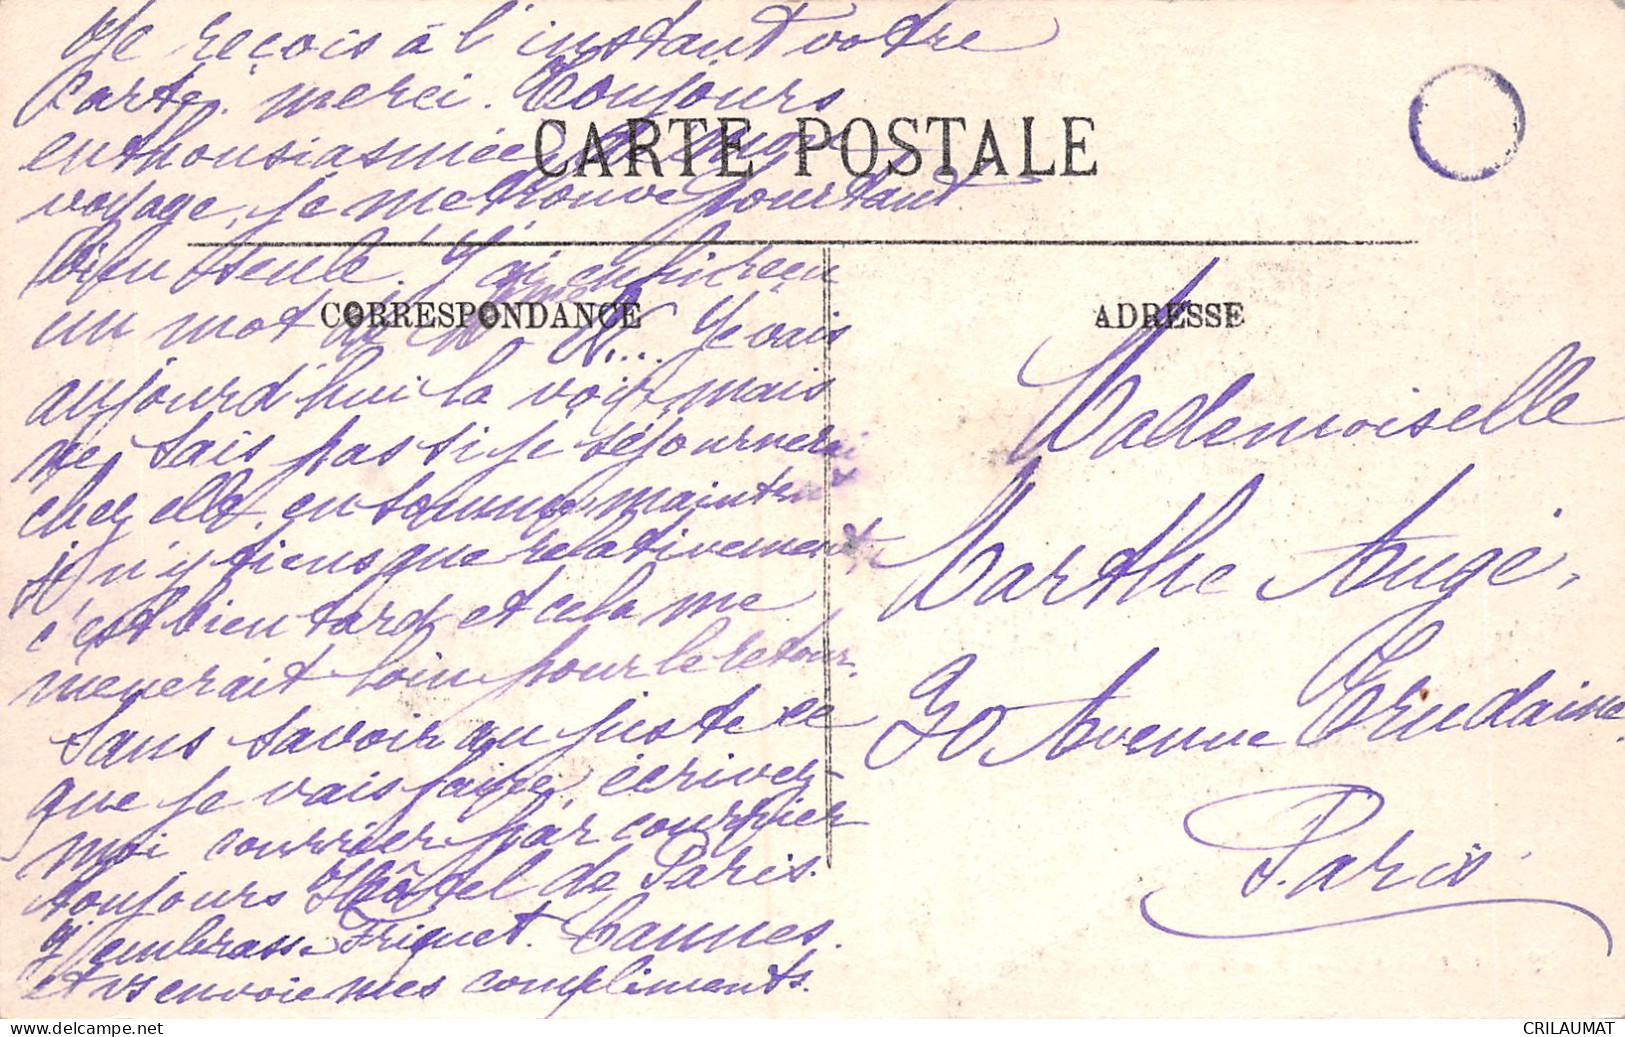 Je reçois à l'instant votre
Carte, merci. Toujours
enthousiasmée de mon
voyage, je me trouve pourtant
bien seule. J'ai enfin reçu
un mot de Mme N.... Je vais
aujourd'hui la voir, mais
ne sais pas si je séjournerai
chez elle, en somme, maintenant
je n'y tiens que relativement
c'est bien tard et cela me
mènerait loin pour le retour.
Sans savoir au juste ce
que je vais faire, écrivez-
moi courrier par courrier
toujours Hôtel de Paris.
J'embrasse Friquet. Cannes.
et vs envoie mes compliments.
CARTE POSTALE
CORRESPONDANCE
ADRESSE
Mademoiselle
Marthe Augé,
30 Avenue Trudaine
Paris.
CRILAUMAT